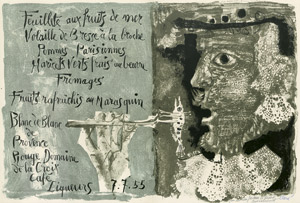 Feuilleté aux fruits de mer
Volaille de Bresse à la broche
Pommes Parisiennes
Haricots Verts frais au beurre
Fromages
Fruits rafraîchis au Marasquin
Blanc de Blanc
de
Provence
Rouge Domaine
de la Croix
Café
Liqueurs
7.7.55